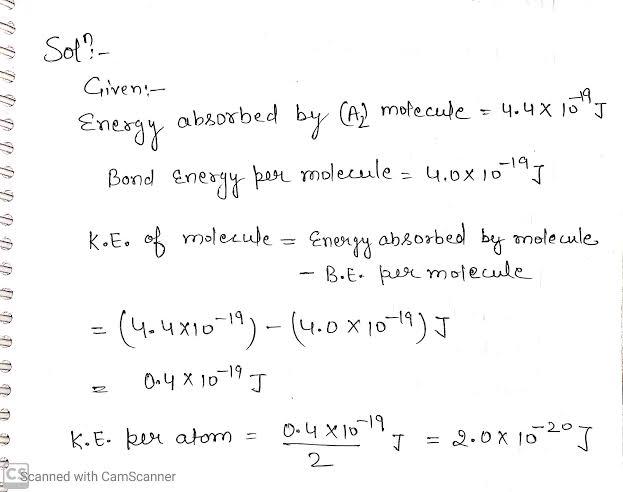 Solⁿ:-
Given:-
Energy absorbed by (A₂) molecule = 4.4 × 10⁻¹⁹ J
Bond Energy per molecule = 4.0 × 10⁻¹⁹ J
K.E. of molecule = Energy absorbed by molecule
- B.E. per molecule
= (4.4 × 10⁻¹⁹) - (4.0 × 10⁻¹⁹) J
= 0.4 × 10⁻¹⁹ J
K.E. per atom = 0.4 × 10⁻¹⁹ / 2 J = 2.0 × 10⁻²⁰ J
CS Scanned with CamScanner